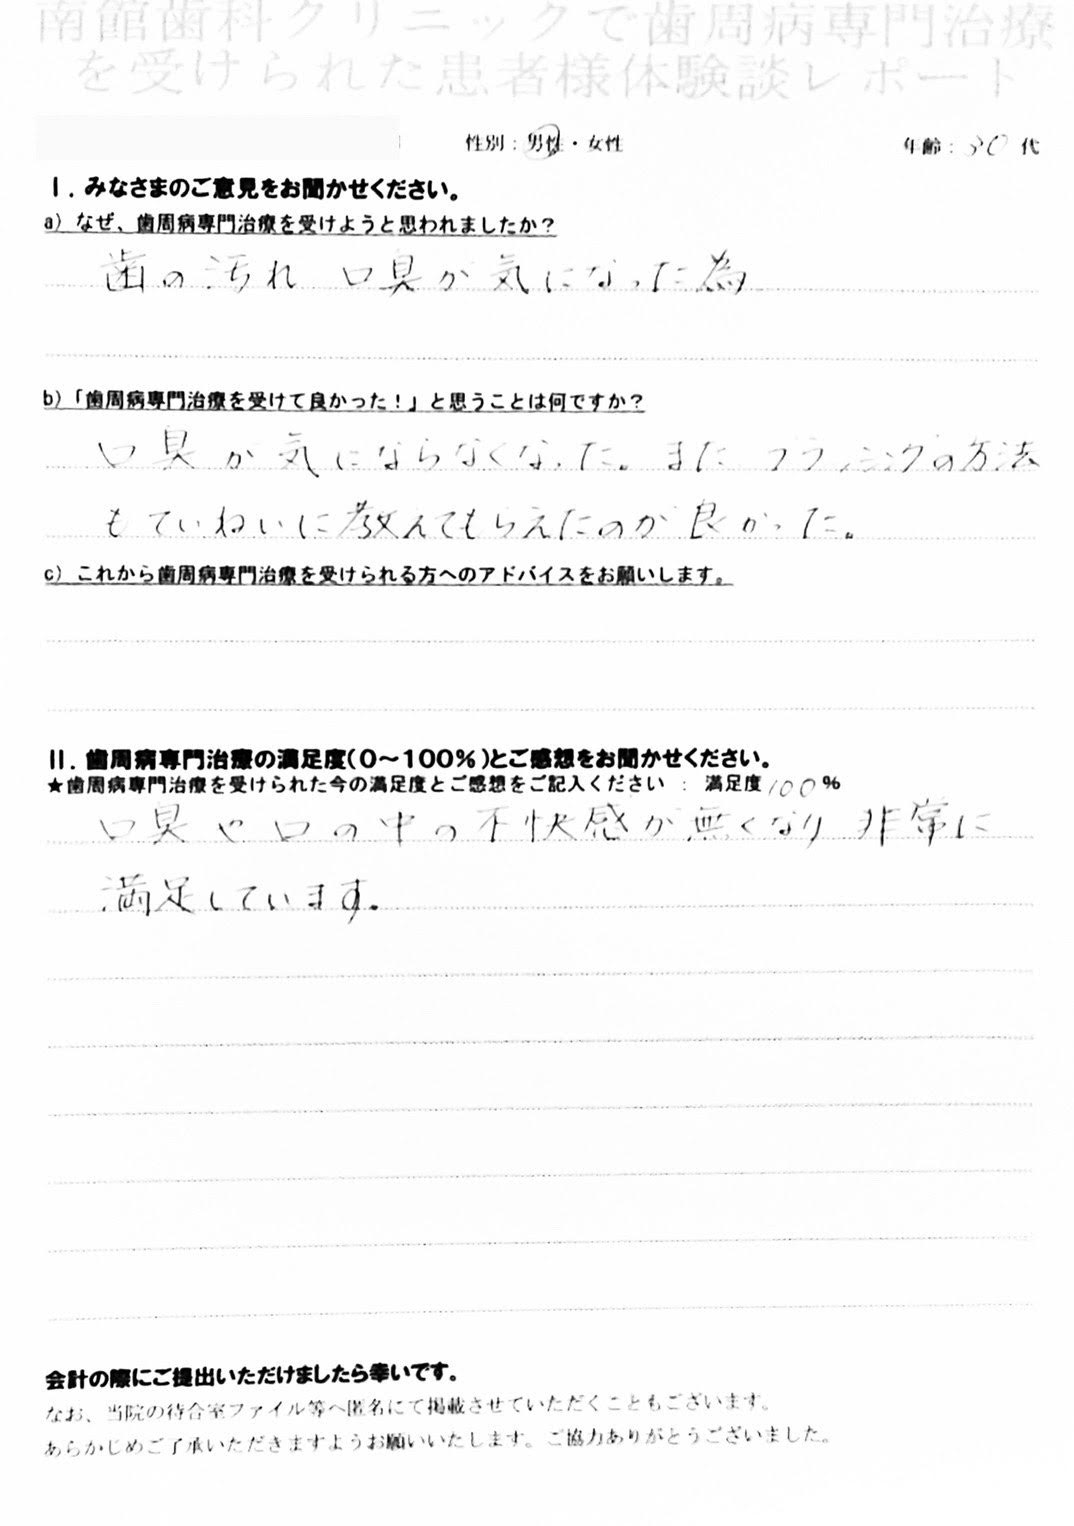 南館歯科クリニックで歯周病専門治療
を受けられた患者様体験談レポート
性別：男性・女性 年齢：30代
Ⅰ．みなさまのご意見をお聞かせください。
a）なぜ、歯周病専門治療を受けようと思われましたか？
歯の汚れ 口臭が気になった為
b）「歯周病専門治療を受けて良かった！」と思うことは何ですか？
口臭が気にならなくなった。また ブラッシングの方法
もていねいに教えてもらえたのが良かった。
c）これから歯周病専門治療を受けられる方へのアドバイスをお願いします。
Ⅱ．歯周病専門治療の満足度（0～100％）とご感想をお聞かせください。
★歯周病専門治療を受けられた今の満足度とご感想をご記入ください ： 満足度100％
口臭や口の中の不快感が無くなり 非常に
満足しています。
会計の際にご提出いただけましたら幸いです。
なお、当院の待合室ファイル等へ匿名にて掲載させていただくこともございます。
あらかじめご了承いただきますようお願いいたします。ご協力ありがとうございました。